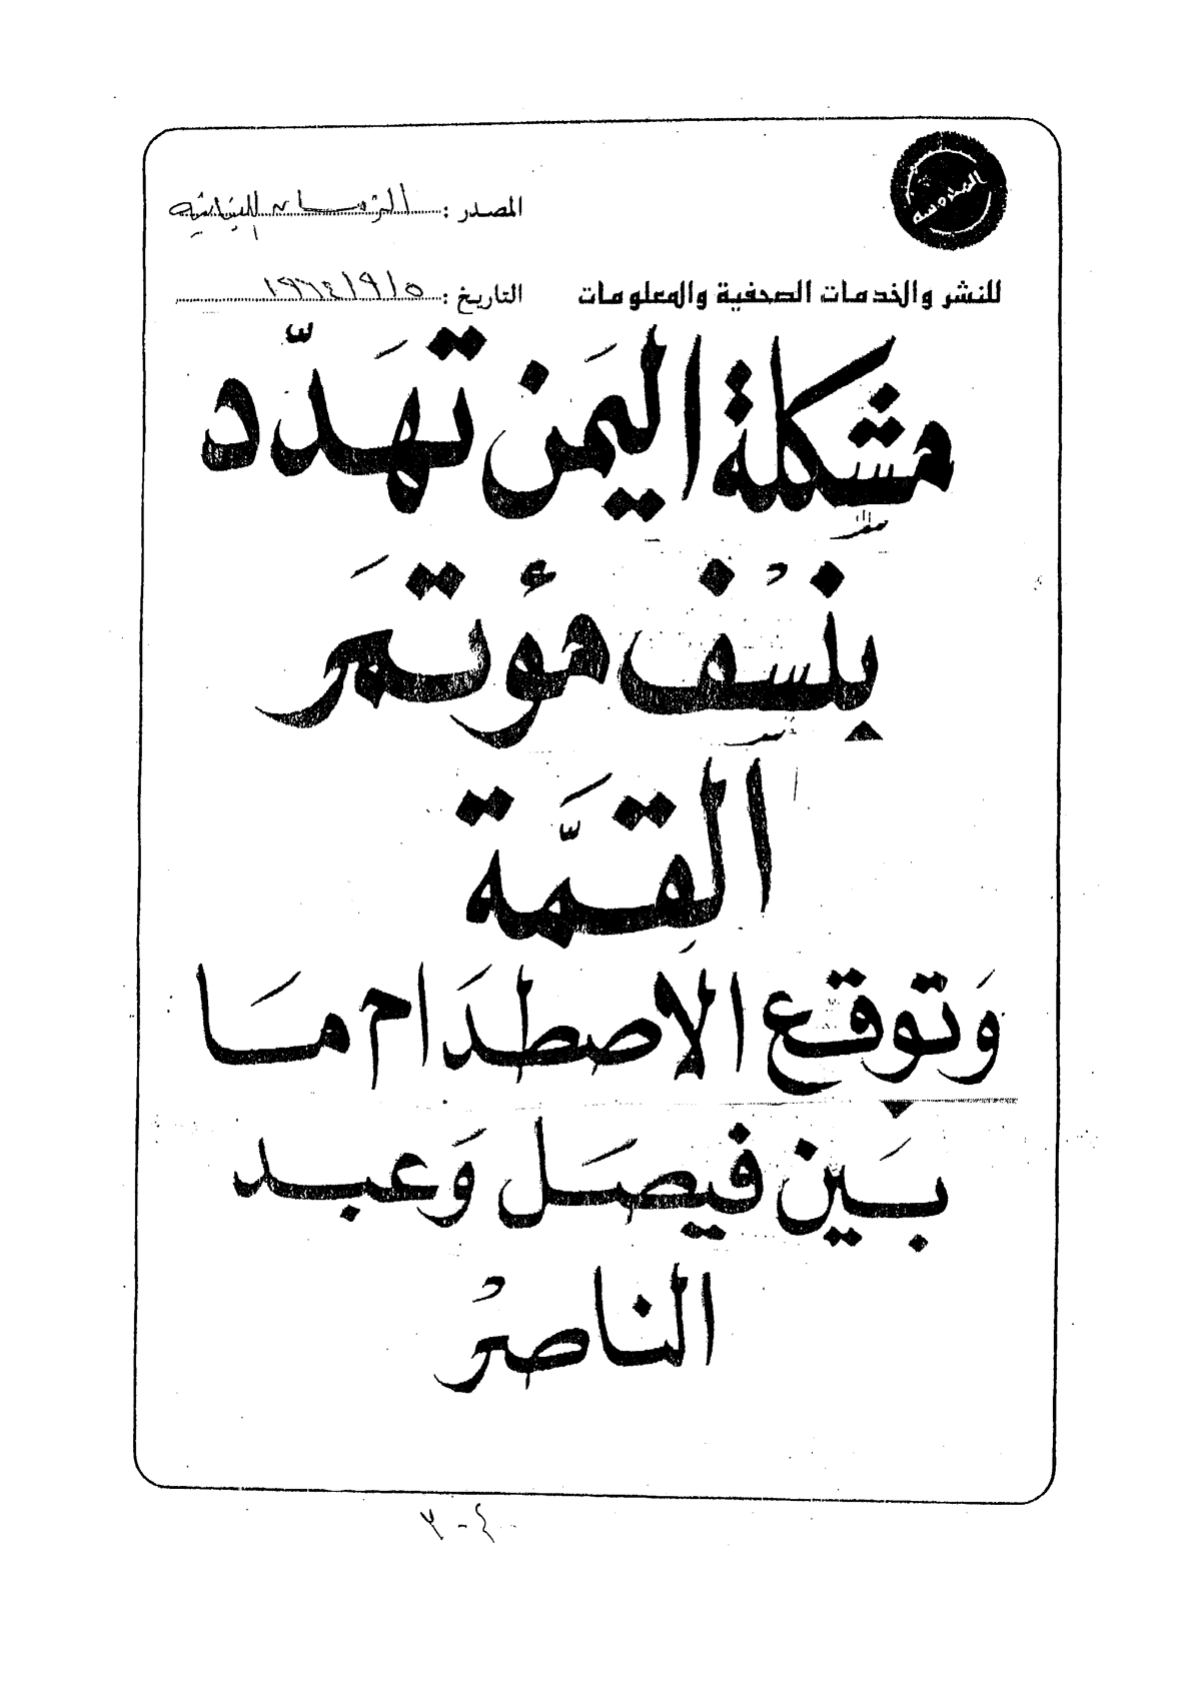 المحروسة
المصدر : الزمان اللبنانية
للنشر والخدمات الصحفية والمعلومات
التاريخ : ١٩٦٤/٩/٥
مشكلة اليمن تهَدّد
بنسْف مؤتمَر
القمَّة
وَتوقع الاصطدَام مَا
بَين فيصَل وَعبد
الناصرْ
٤ - ٢